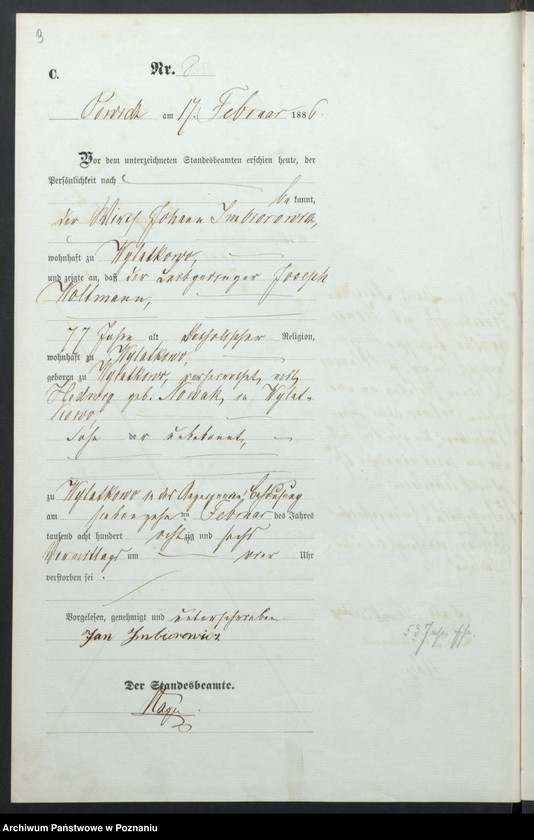 9
C.
Nr. 8
Powidz am 17. Februar 1886.
Vor dem unterzeichneten Standesbeamten erschien heute, der
Persönlichkeit nach
bekannt,
der Wirth Johann Imbiorowicz,
wohnhaft zu Wylatkowo,
und zeigte an, daß der Leibgedinger Joseph
Woltmann,
77 Jahre alt, katholischer Religion,
wohnhaft zu Wylatkowo,
geboren zu Wylatkowo, verheirathet mit
Hedwig geb. Nowak, in Wylat-
kowo
Sohn der unbekannt,
zu Wylatkowo in des Behausung
am siebenzehnten Februar des Jahres
tausend acht hundert achtzig und sechs
Vormittags um vier Uhr
verstorben sei.
Vorgelesen, genehmigt und unterschrieben
Jan Imbiorowicz
Der Standesbeamte.
Archiwum Państwowe w Poznaniu